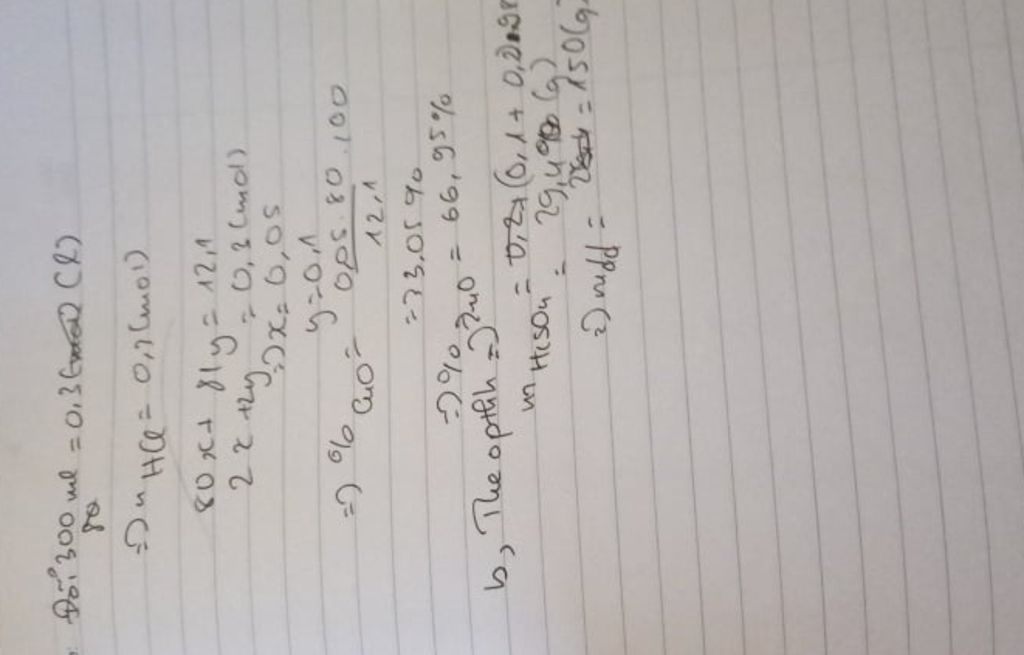 Đổi 300 ml = 0,3 (l)
=> n HCl = 0,3 (mol)
80x + 81y = 12,1
2x + 2y = 0,3 (mol)
=> x = 0,05
y = 0,1
=> % CuO = 0,05.80.100
12,1
= 33,05%
=> % ZnO = 66,95%
b, Theo pthh =>
m H2SO4 = (0,1 + 0,2)
= 29,4 (g)
=> mdd = = 150 (g)